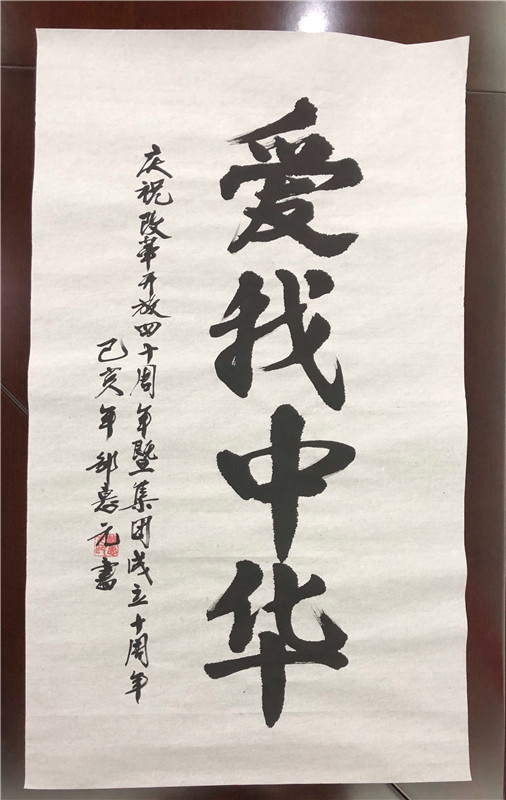 爱我中华
庆祝改革开放四十周年暨集团成立十周年
己亥年 元书